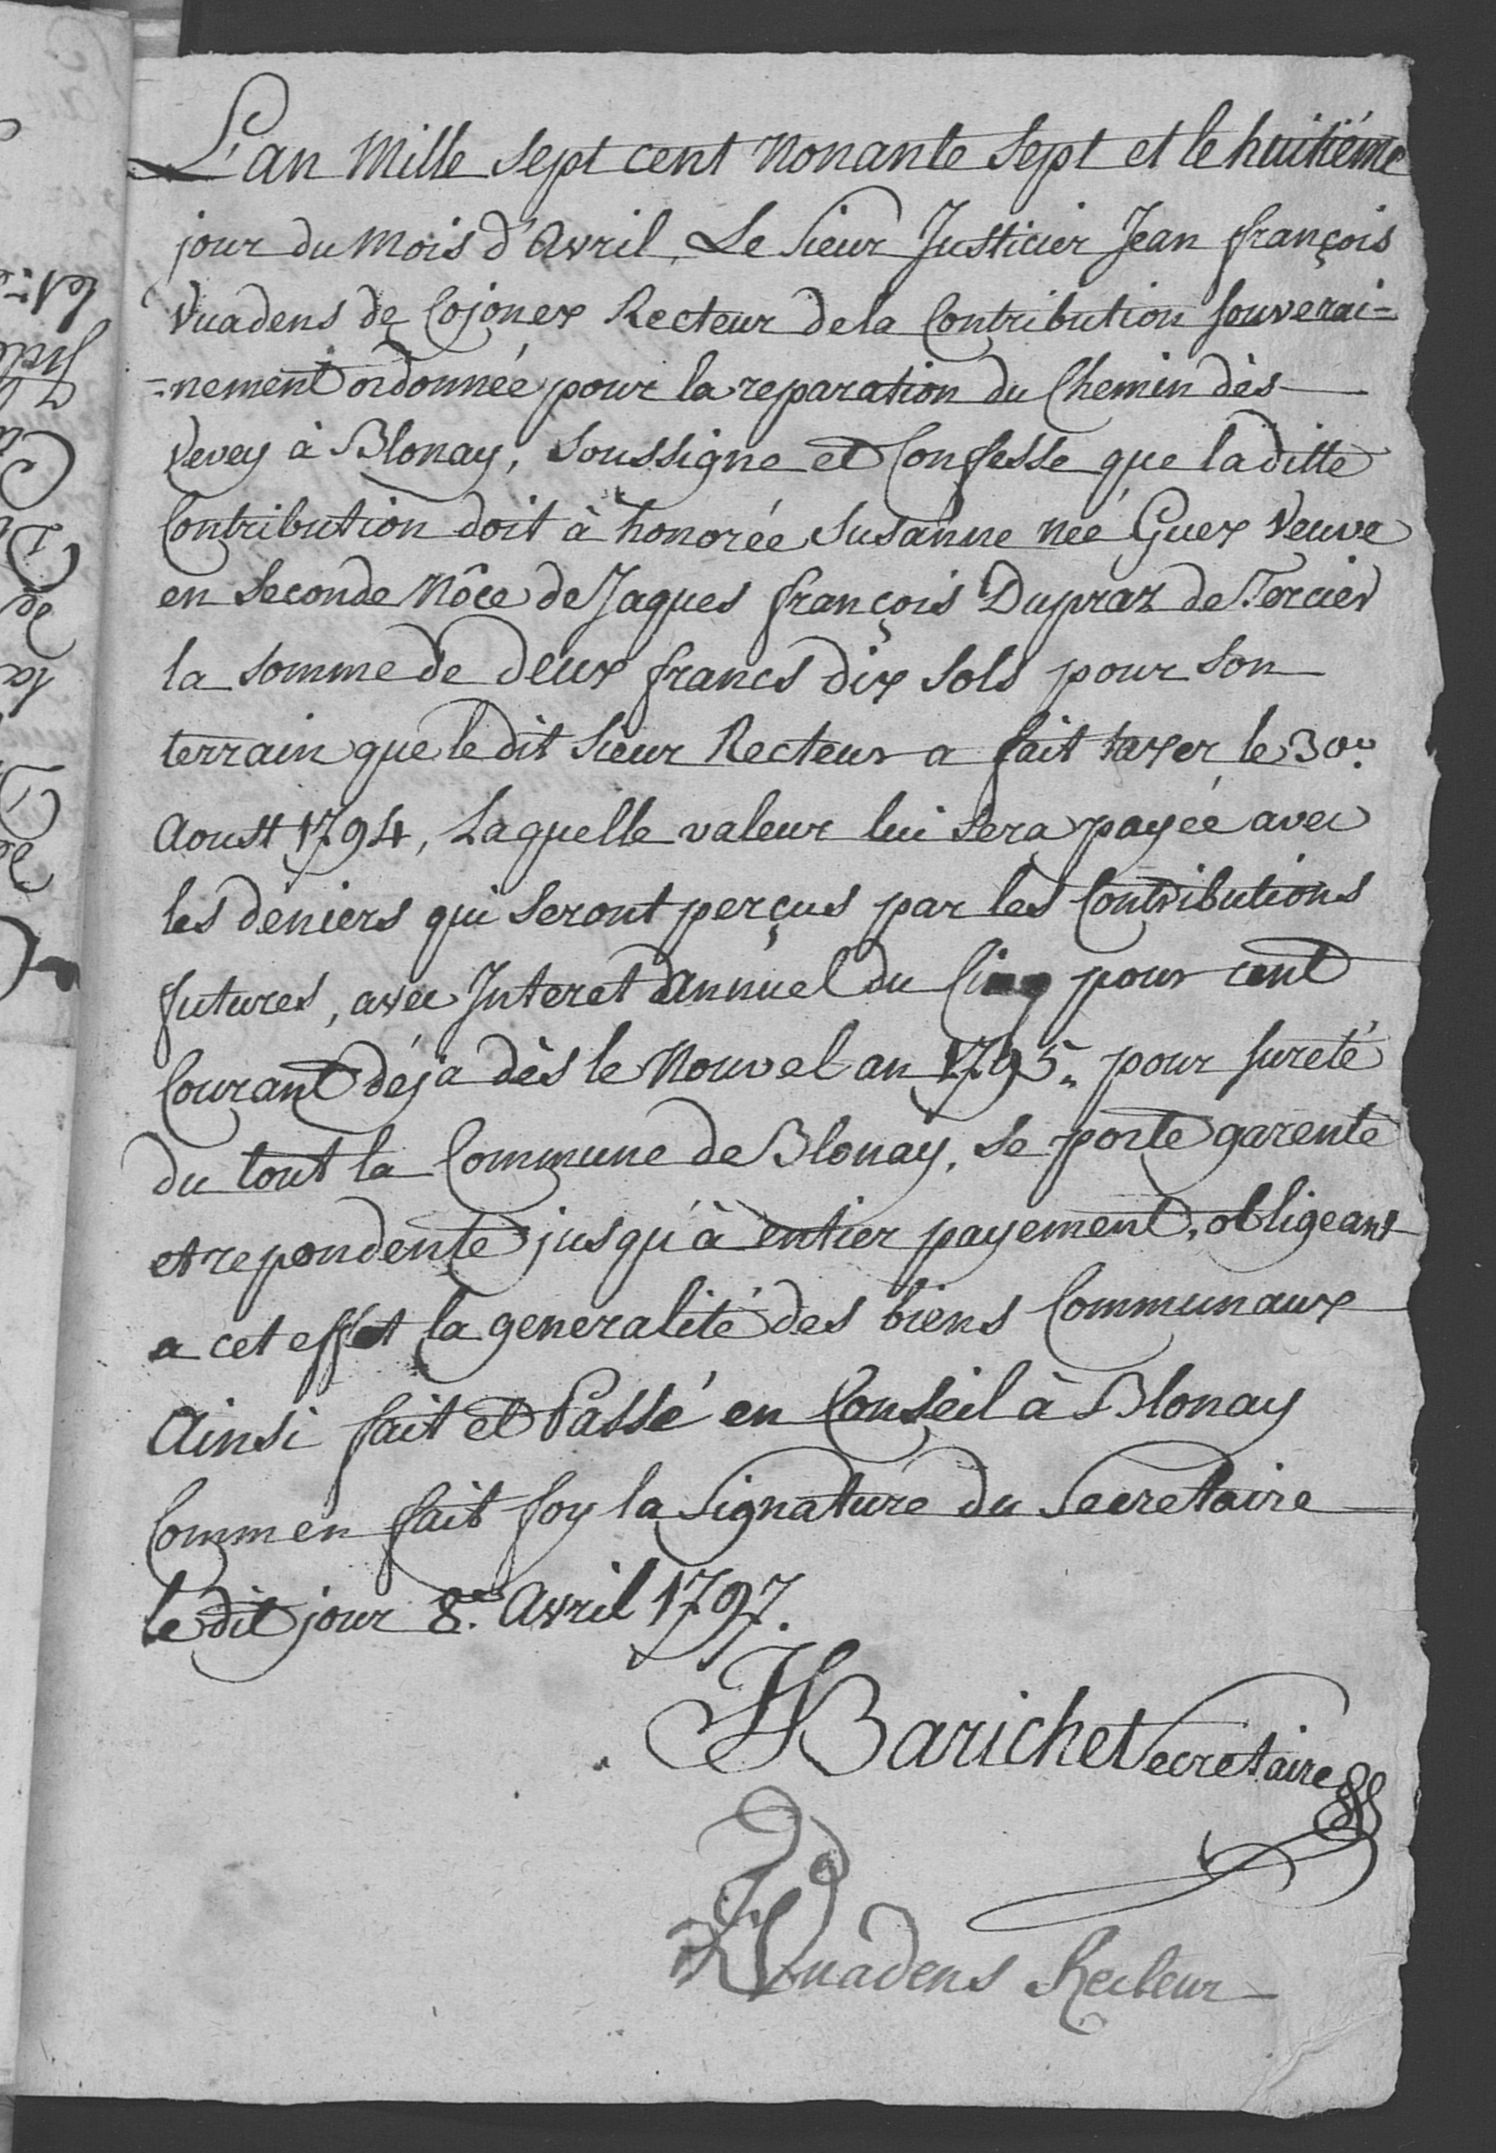 L'an Mille Sept cent Nonante Sept et le huitiéme
jour du Mois d'Avril, Le Sieur Justicier Jean françois
Vuadens de Cojonex Recteur de la Contribution souverai=
=nement ordonnée pour la reparation du Chemin dès
Vevey à Blonay, Soussigne et Confesse que la ditte
Contribution doit à honorée Susanne née Guex Veuve
en Seconde Nôce de Jaques françois Dupraz de Tercier
la somme de deux francs dix Sols pour son
terrain que le dit Sieur Recteur a fait taxer le 30e.
Aoust 1794, Laquelle valeur lui sera payée avec
les deniers qui Seront perçus par les Contributions
futures, avec Interet Annuel du Cinq pour cent
Courant déja dès le Nouvel an 1795. pour sureté
du tout la Commune de Blonay, se porte garente
et repondente jusqu'à entier payement, obligeant
a cet effet la generalité des biens Communaux
Ainsi fait et Passé en Conseil à Blonay
Comm en fait foy la Signature du Secretaire
le dit jour 8e. Avril 1797.
Barichet Secretaire
Vuadens Recteur